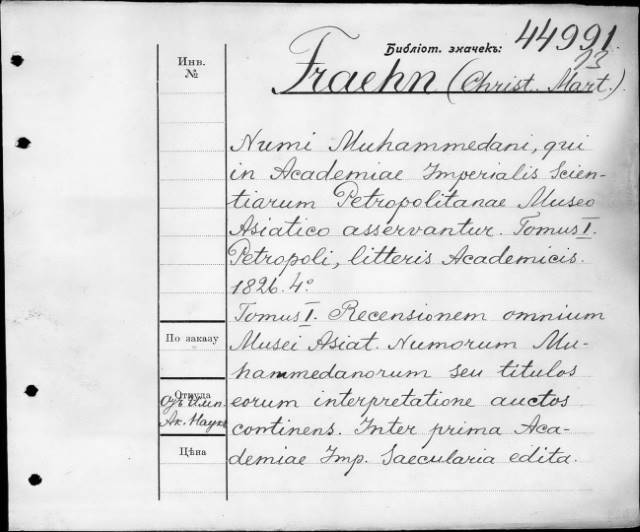 Библіот. значекъ: 44991
23
Fraehn (Christ. Mart.)
Инв.
№
Numi Muhammedani, qui
in Academiae Imperialis Scien-
tiarum Petropolitanae Museo
Asiatico asservantur. Tomus I.
Petropoli, litteris Academicis.
1826. 4º
Tomus I. Recensionem omnium
Musei Asiat. Numorum Mu-
hammedanorum seu titulos
eorum interpretatione auctos
continens. Inter prima Aca-
demiae Imp. Saecularia edita.
По заказу
Откуда
отъ Имп.
Ак. Наукъ
Цѣна